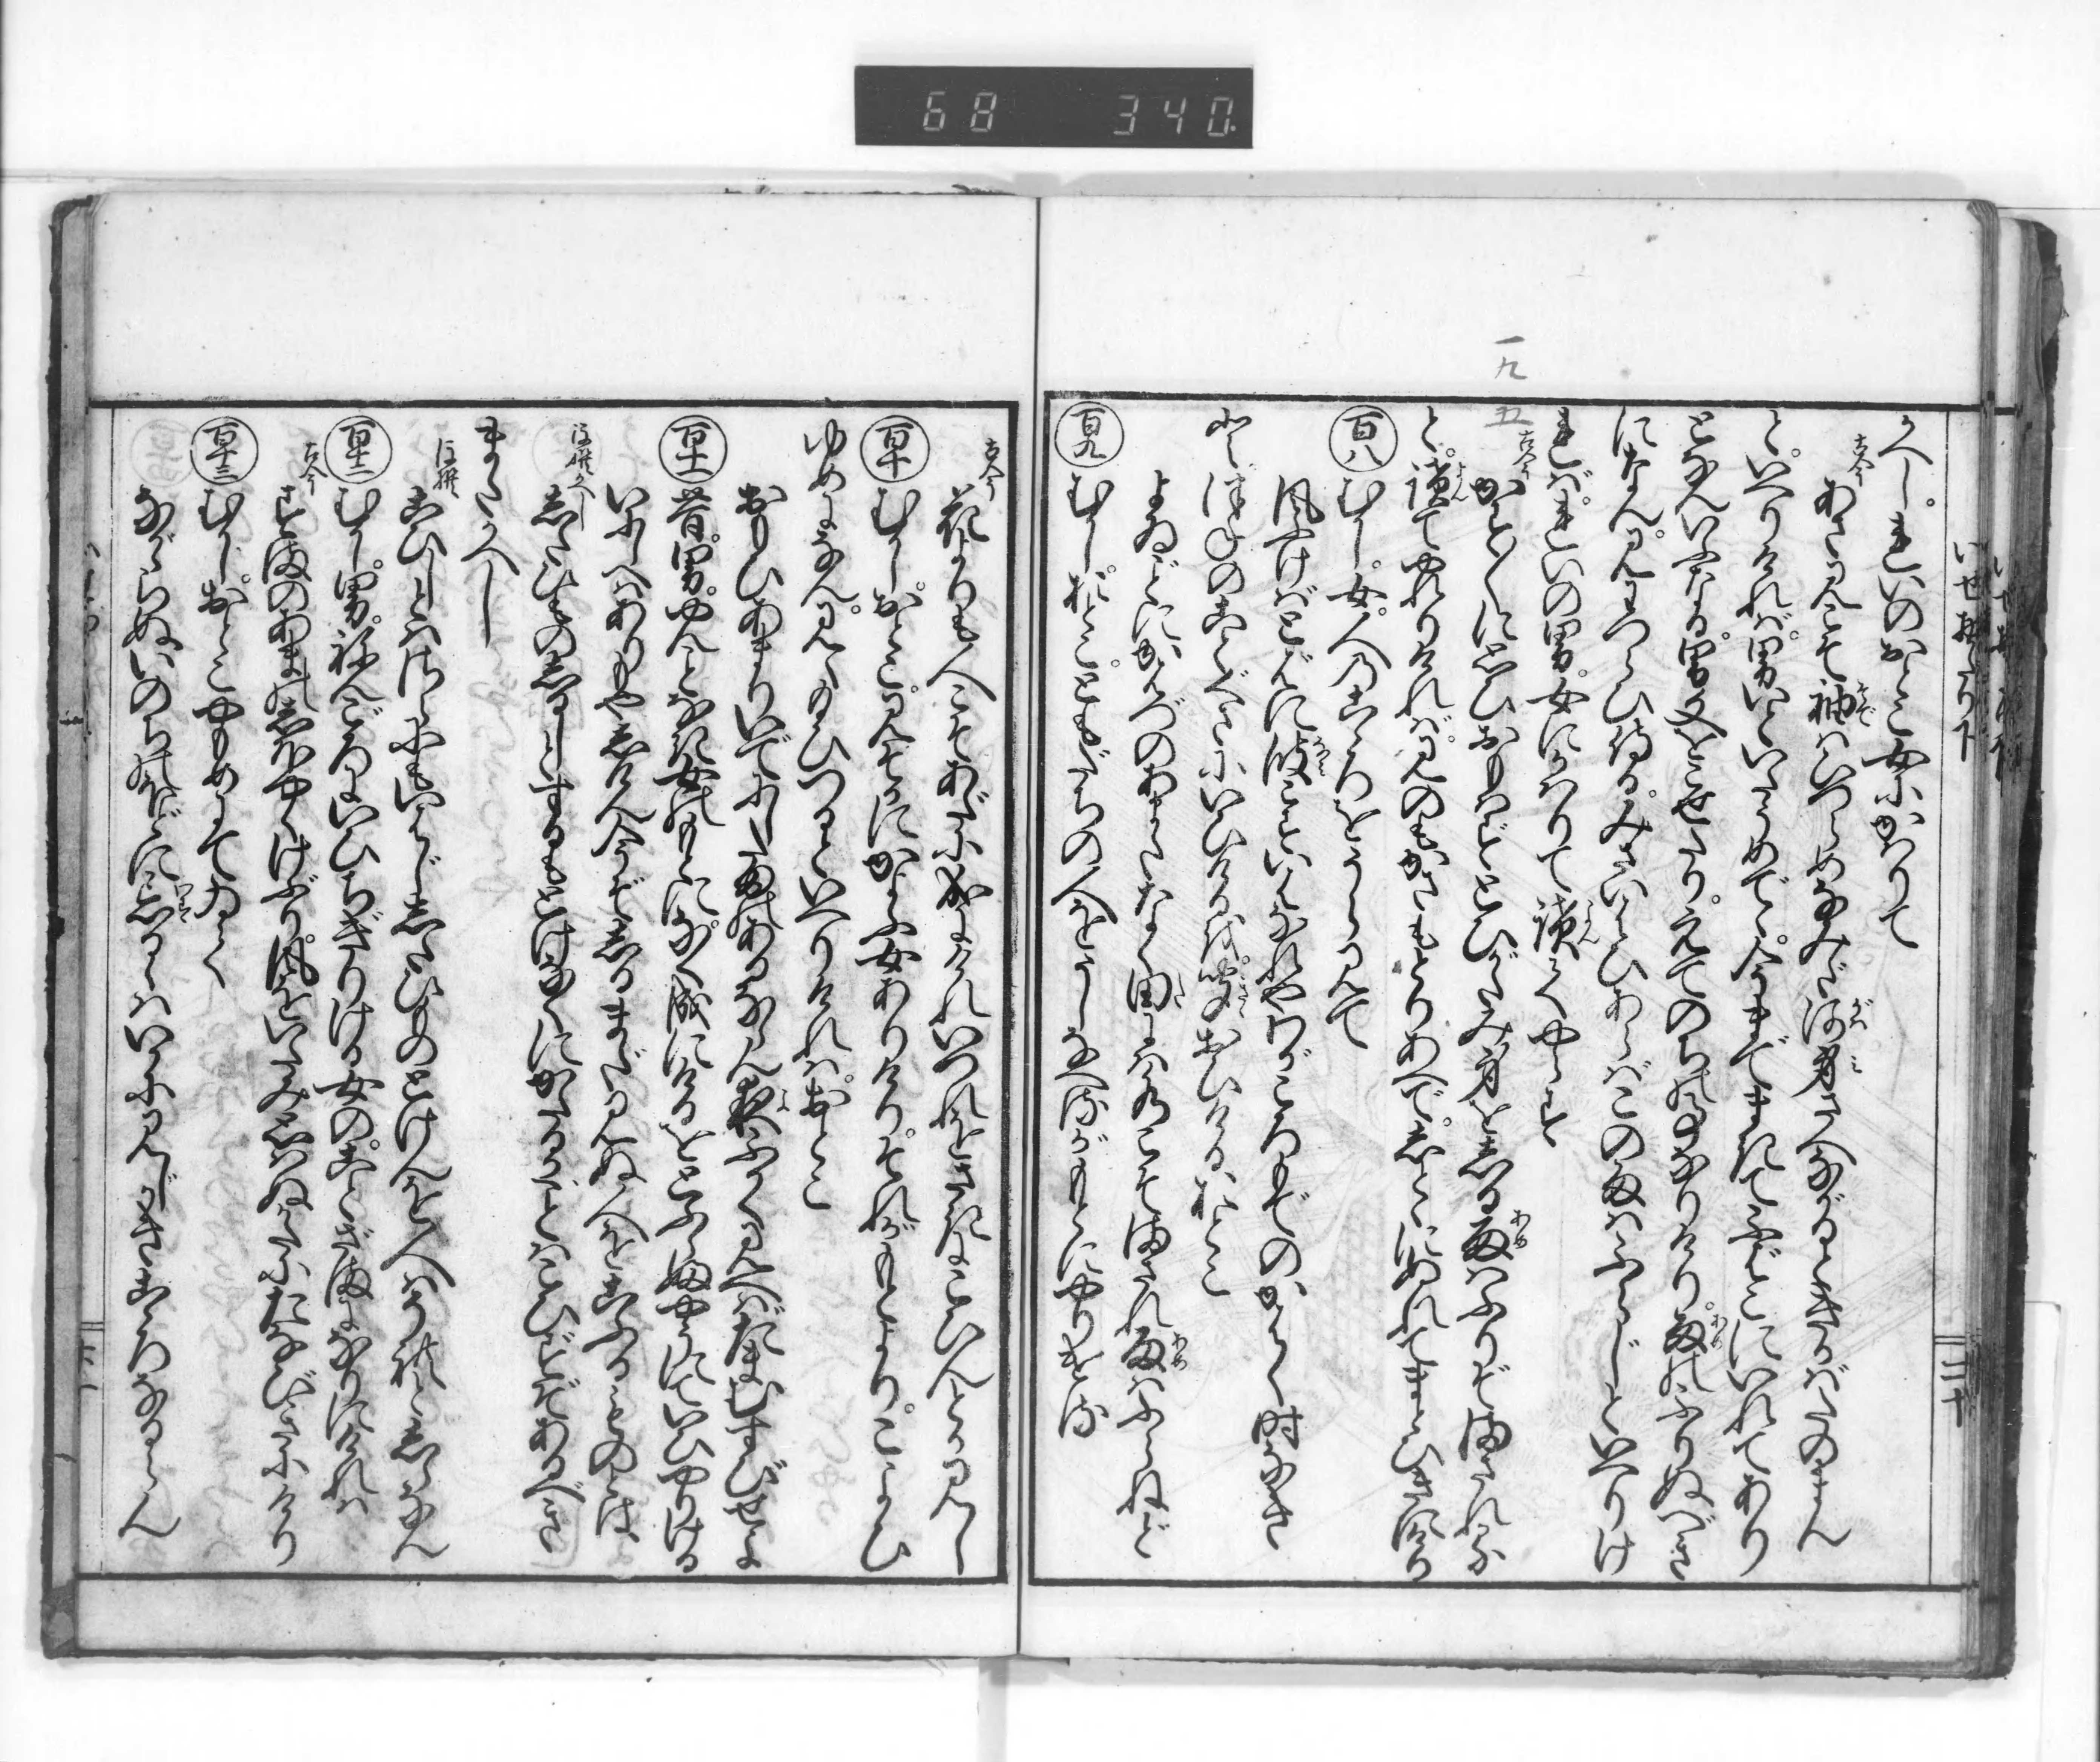 いせ物がたり下
三十
かへし。れいのおとこ女にかはりて
古今 あさみこそ袖はひつらめなみだ河身さへながるときかばたのまん
と。いへりければ。男いといたうめでゝ。今まで。まきてふばこにいれてあり
となんいふなる。男文をこせたり。えてのちの事なりけり。雨のふりぬべき
になん見わづらひ侍る。みさいはひあらばこの雨はふらじといへりけ
れば。れいの男。女にかはりて読てやらす
古今 かず〳〵に思ひおもはずとひがたみ身をしる雨はふりぞまされる
と。読てやれりければ。みのもかさもとりあへで。しとゞにぬれてまどひきにけり
百八 むかし。女。人の心をうらみて
風ふけばとはに波こすいはなれやわがころもでのかはく時なき
と。つねのことぐさにいひけるを。聞おひけるおとこ
よゐごとにかはづのあまたなく田には水こそまされ雨はふらねど
百九 むかし。おとこ。ともだちの人をうしなへるがもとにやりける
一九五
古今 花よりも人こそあだになりにけれいづれをさきにこひんとかみし
百十 むかし。おとこ。みそかにかよふ女ありけり。それがもとより。こよひ
ゆめになん。見え給ひつるといへりければ。おとこ
おもひあまりいでにし玉のあるならん夜ふかく見えばたまむすびせよ
百十一 昔。男。やんごとなき女のもとに。なく成にけるをとふらふやうにていひやりける
いにしへはありもやしけん今ぞしるまだみぬ人をこふるものとは
後撰かへし 下ひものしるしとするもとけなくにかたるがごとはこひずぞあるべき
またかへし
後撰 こひしとはさらにもいはじ下ひものとけんを人はそれとしらなん
百十二 むかし。男。ねんごろにいひちぎりける女の。ことざまになりにければ
古今 すまのあまの塩やくけぶり風をいたみおもはぬかたにたなびきにけり
百十三 むかし。おとこやもめにてゐて
ながゝらぬいのちのほどに忘るゝはいかにみじかきこゝろなるらん
68 340